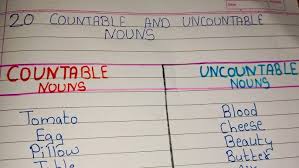 20 COUNTABLE AND UNCOUNTABLE
NOUNS
COUNTABLE
NOUNS
UNCOUNTABLE
NOUNS
Tomato
Egg
Pillow
Blood
Cheese
Beauty
Butter